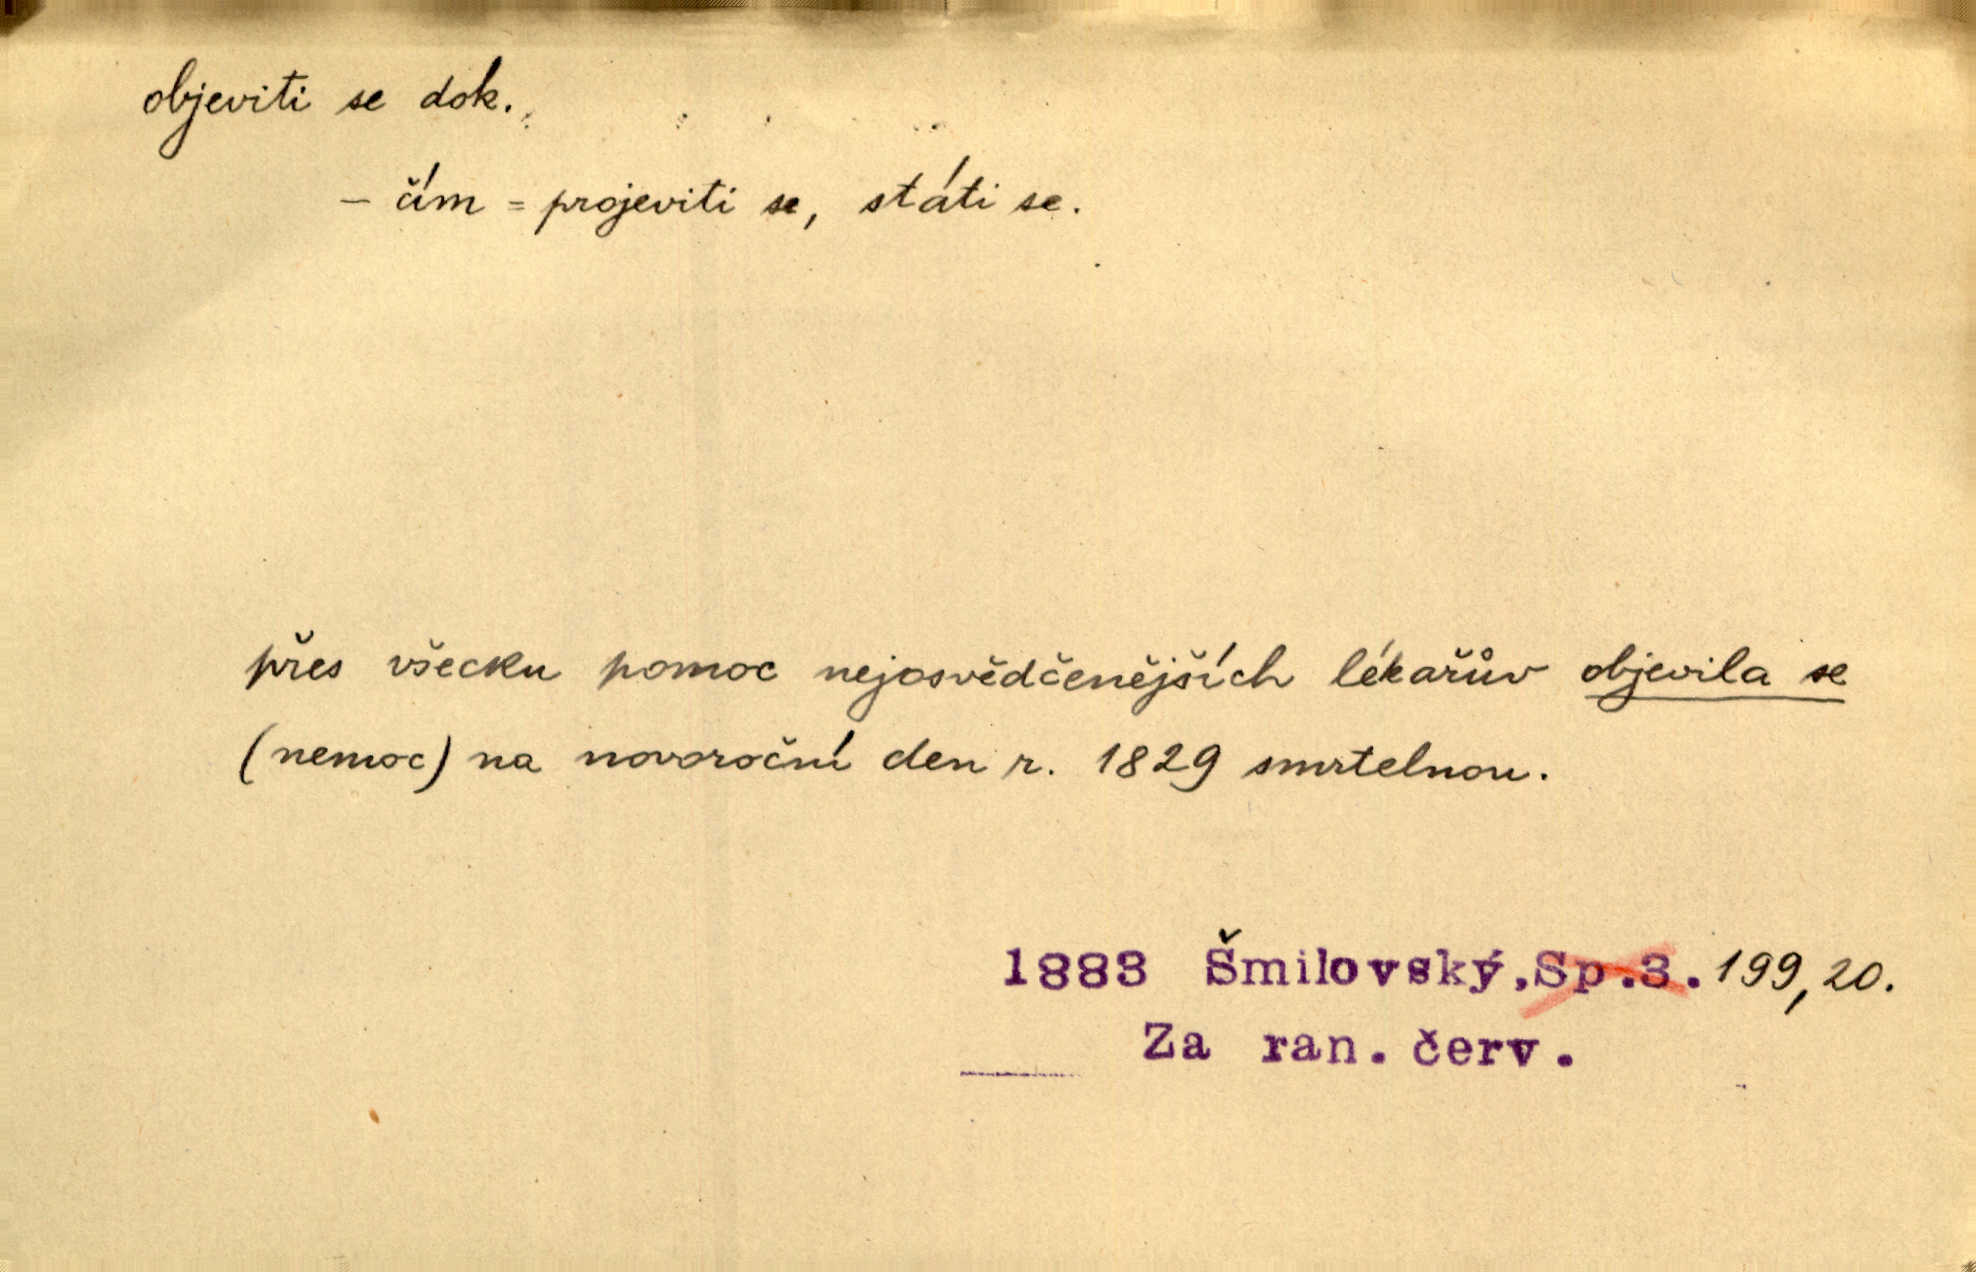 objeviti se dok.
– čím = projeviti se, státi se.
přes všecku pomoc nejosvědčenějších lékařův objevila se
(nemoc) na novoroční den r. 1829 smrtelnou.
1883 Šmilovský, Sp.3. 199, 20.
Za ran. červ.